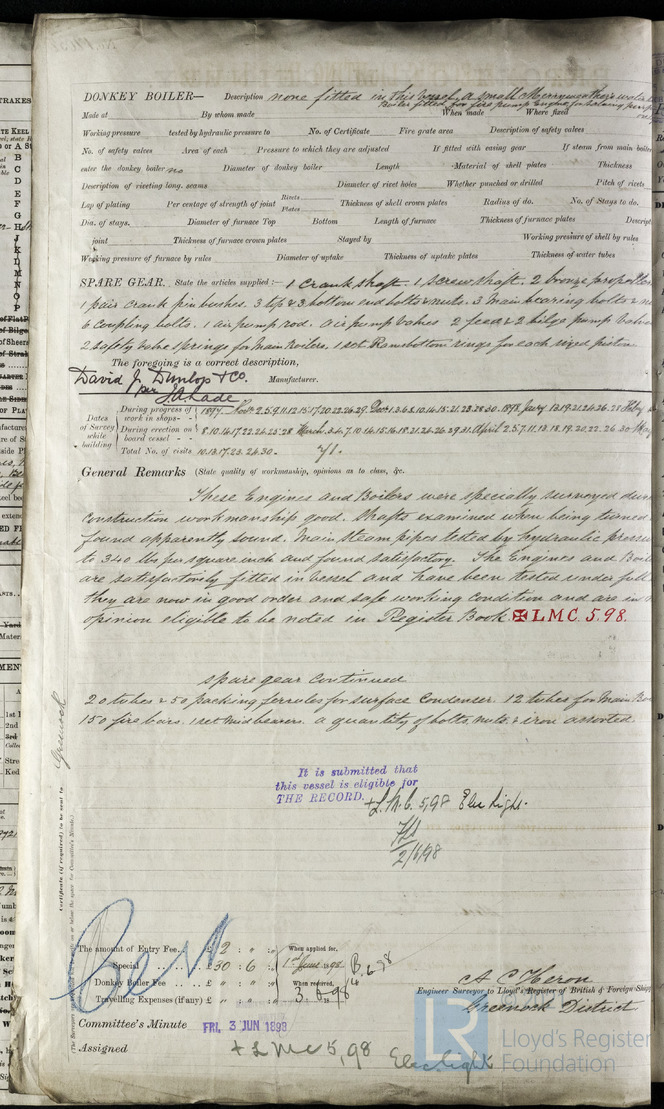 DONKEY BOILER— Description none fitted in this vessel, a small Merryweather's water
Boiler fitted for fire pump Engine for
Made at By whom made When made Where fixed
Working pressure tested by hydraulic pressure to No. of Certificate Fire grate area Description of safety valves
No. of safety valves Area of each Pressure to which they are adjusted If fitted with easing gear If steam from main boiler
enter the donkey boiler no Diameter of donkey boiler Length Material of shell plates Thickness
Description of riveting long. seams Diameter of rivet holes Whether punched or drilled Pitch of rivets
Lap of plating Per centage of strength of joint Rivets Plates Thickness of shell crown plates Radius of do. No. of Stays to do.
Dia. of stays. Diameter of furnace Top Bottom Length of furnace Thickness of furnace plates Descript
joint Thickness of furnace crown plates Stayed by Working pressure of shell by rules
Working pressure of furnace by rules Diameter of uptake Thickness of uptake plates Thickness of water tubes
SPARE GEAR. State the articles supplied:— 1 crank shaft. 1 screw shaft. 2 bronze propeller
1 pair crank pin bushes. 3 top & 3 bottom end bolts & nuts. 3 main bearing bolts &
6 coupling bolts. 1 air pump rod. air pump valves 2 feed & 2 bilge pump valve
2 safety valve springs for main boilers, 1 set Ramsbottom rings for each sized piston
The foregoing is a correct description,
David J. Dunlop & Co. Manufacturer.
per
Dates of Survey while building
During progress of work in shops - - 1897. Nov. 2.5.9.11.12.15.17.20.22.26.29. Dec. 1.3.6.8.10.14.15.21.23.28.30. 1898. Jany 13.19.21.24.26.28 Feby
During erection on board vessel - - 8.10.16.17.22.24.25.28 March 3.4.7.10.14.15.16.18.21.24.26.29.31. April 2.5.7.11.13.18.19.20.22.26.30 May
Total No. of visits 10.13.17.23.26.30. 71.
General Remarks (State quality of workmanship, opinions as to class, &c.
These Engines and Boilers were specially surveyed dur
construction workmanship good. Shafts examined when being turned
found apparently sound. Main steam pipes tested by hydraulic pressur
to 340 lbs per square inch and found satisfactory. The Engines and Boile
are satisfactorily fitted in vessel and have been tested under full
they are now in good order and safe working condition and are in
opinion eligible to be noted in Register Book. ✠ L.M.C. 5.98.
Spare gear continued
20 tubes & 50 packing ferrules for surface condenser. 12 tubes for main Bo
150 fire bars. 1 set mid bearers. a quantity of bolts, nuts, & iron assorted
It is submitted that
this vessel is eligible for
THE RECORD. + L.M.C. 5,98 Elec Light.
2/6/98
Greenock
Certificate (if required) to be sent to
The amount of Entry Fee. . £ 2 : " : "
When applied for,
Special . . . . . £ 30 : 6 : " 1st June 1898
Donkey Boiler Fee . . . £ " : " : " When received,
Travelling Expenses (if any) £ " : " : " 3.6.98
A. C. Heron
Engineer Surveyor to Lloyd's Register of British & Foreign Ship
Greenock District
Committee's Minute FRI. 3 JUN 1898
Assigned + L M C 5,98
Elec light
LR
Lloyd's Register
Foundation